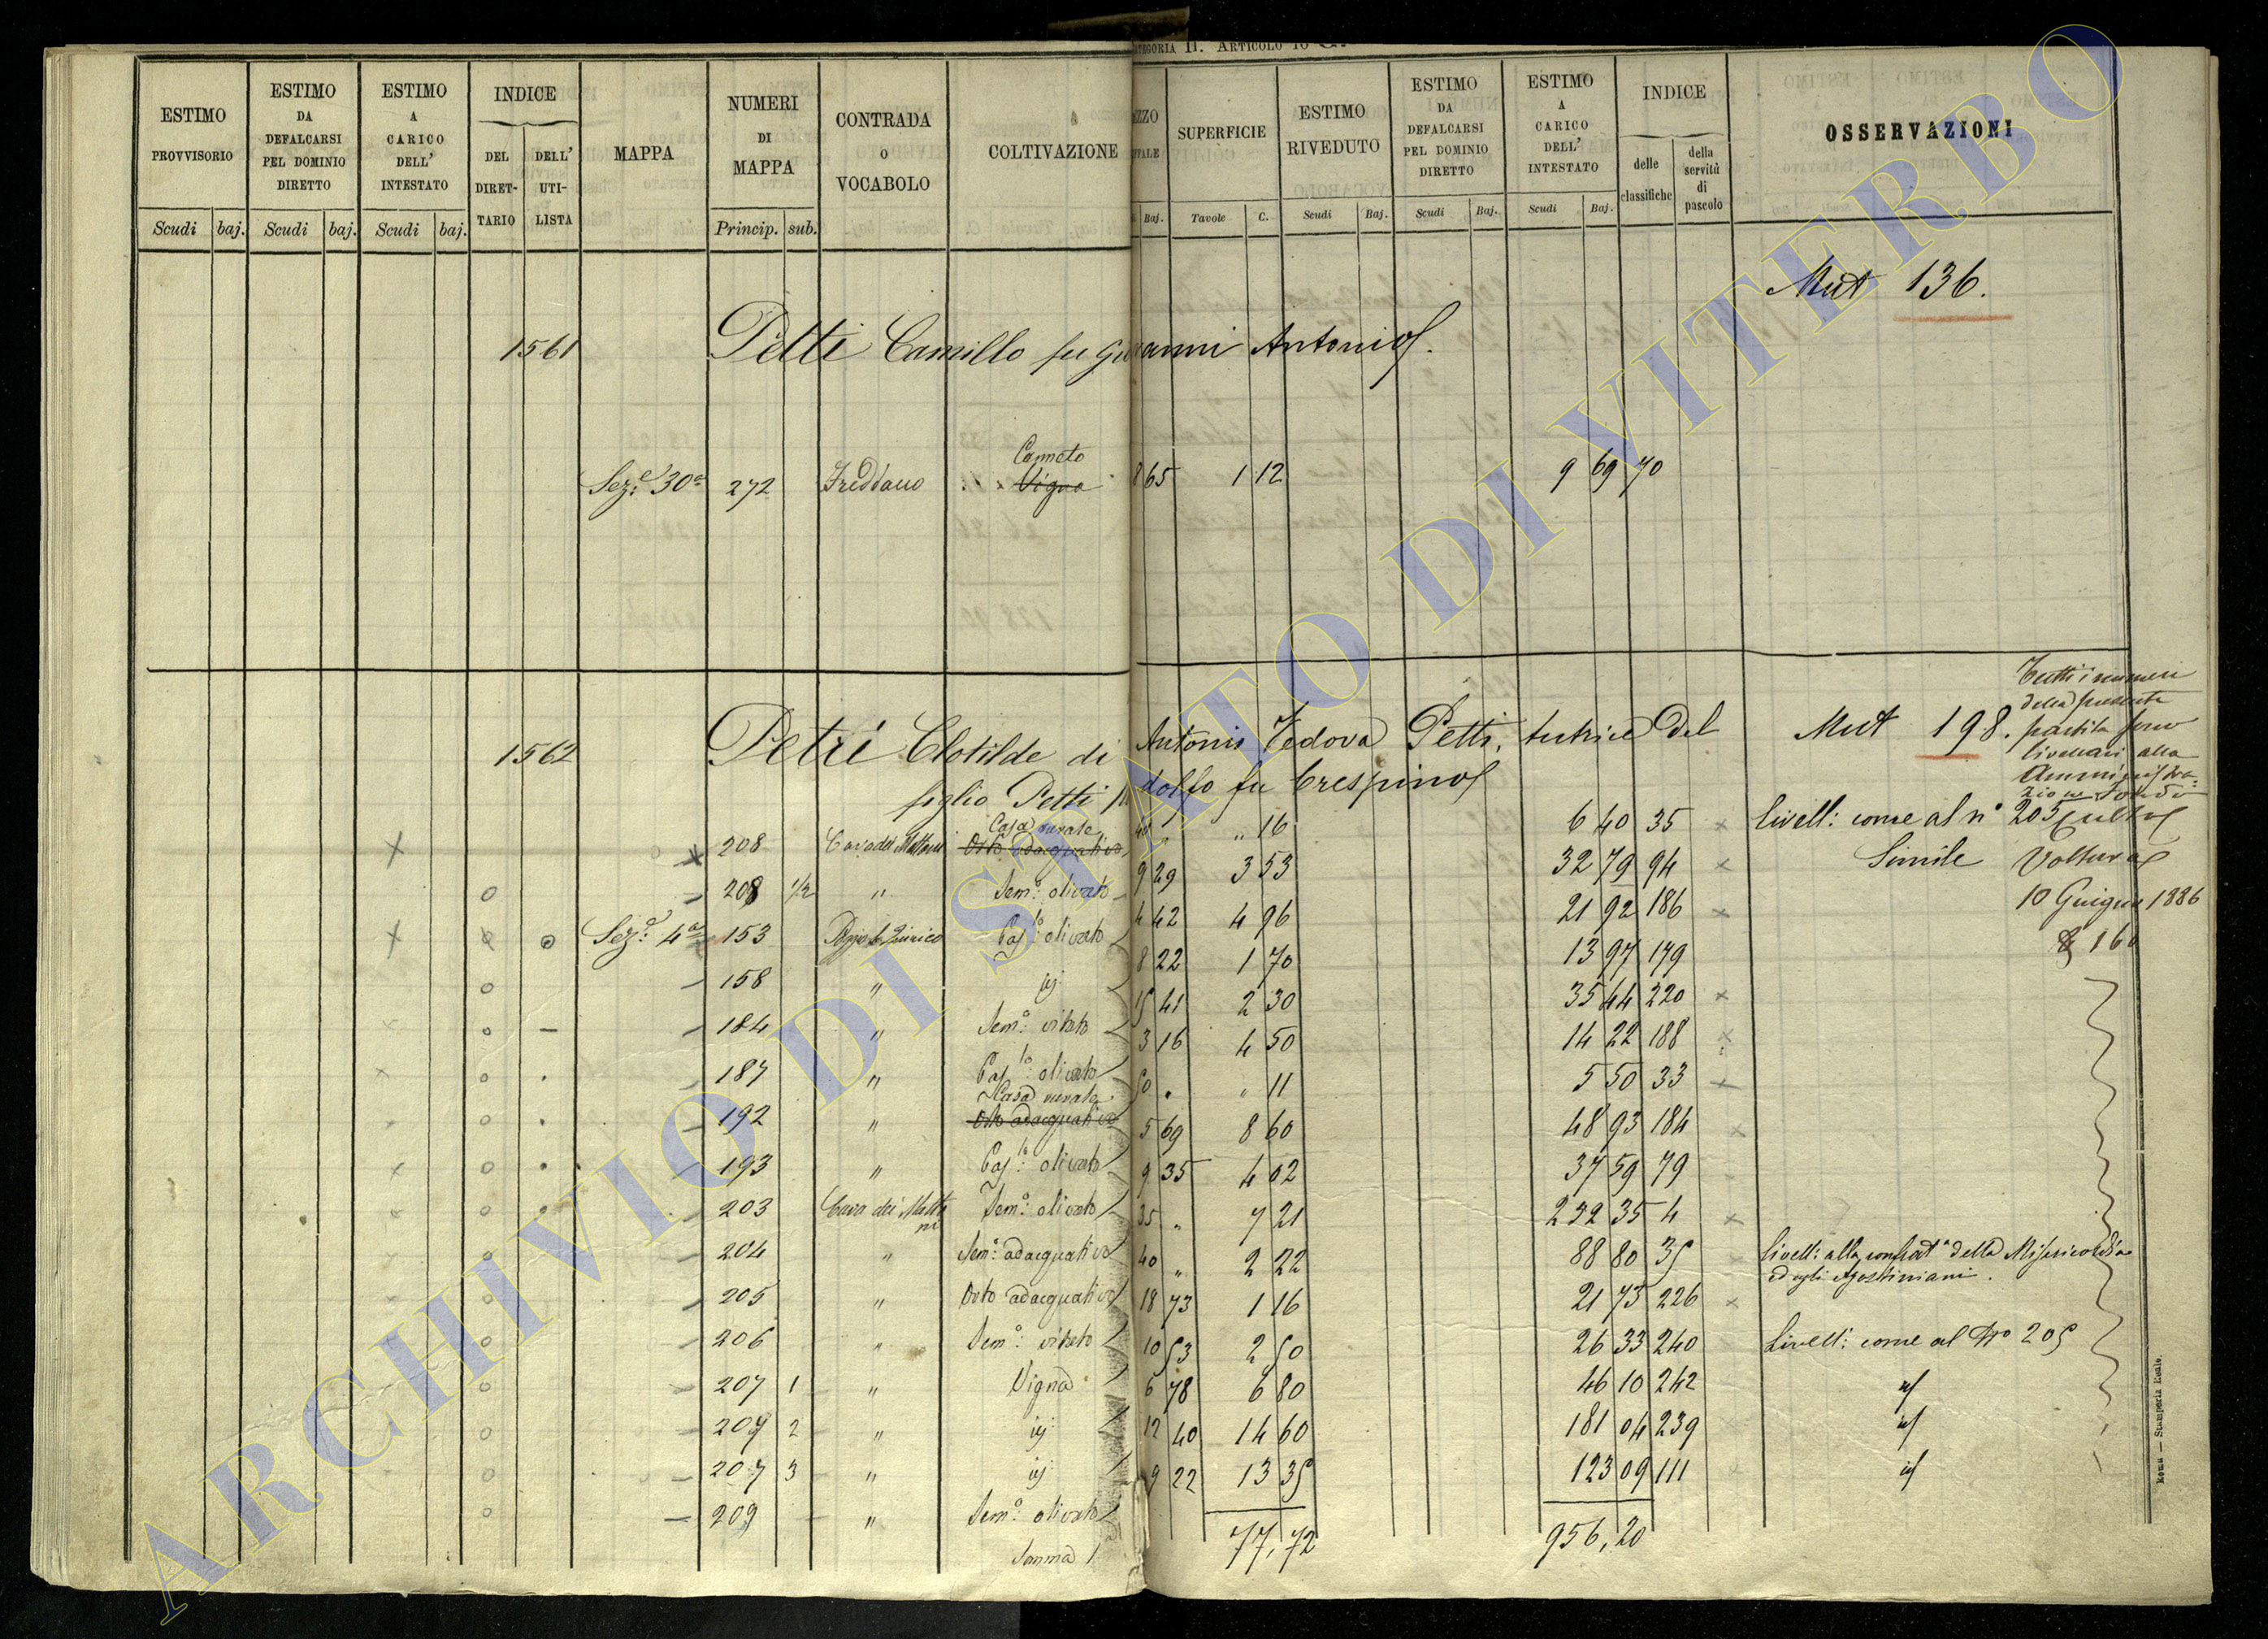 CATEGORIA II. ARTICOLO 10
ESTIMO PROVVISORIO | ESTIMO DA DEFALCARSI PEL DOMINIO DIRETTO | ESTIMO A CARICO DELL' INTESTATO | INDICE DEL DIRETTARIO | DELL' UTILISTA | MAPPA | NUMERI DI MAPPA | CONTRADA O VOCABOLO | COLTIVAZIONE | SUPERFICIE | ESTIMO RIVEDUTO | ESTIMO DA DEFALCARSI PEL DOMINIO DIRETTO | ESTIMO A CARICO DELL' INTESTATO | INDICE delle classifiche | della servitù di pascolo | OSSERVAZIONI
Scudi baj. Scudi baj. Scudi baj. Princip. sub. Baj. Tavole C. Scudi Baj. Scudi Baj. Scudi Baj.
Mut 136.
1561 Petti Camillo fu Giovanni Antonio.
Canneto
Sez.e 30a 272 Freddano Vigna 8 65 1 12 9 69 70
1562 Petri Clotilde di Antonio Vedova Petti, tutrice del Mut 198.
figlio Petti dolfo fu Crespino
Tutti i numeri
della presente
partita sono
livellari alla
Amministra-
zione Fondo
Culto
Casa rurale
208 Cava dei Mattoni Orto adacquativo 40 " " 16 6 40 35 Livell: come al n° 205
208 1/2 " Sem:o olivato 9 29 3 53 32 79 94 Simile
Voltura
10 Giugno 1886
Sez.e 4a 153 Poggio S. Quirico Pas:lo olivato 4 42 4 96 21 92 186
158 " id 8 22 1 70 13 97 179
184 " Sem:o vitato 15 41 2 30 35 44 220
187 " Pas:lo olivato 3 16 4 50 14 22 188
Casa rurale
192 " Orto adacquativo 50 " " 11 5 50 33
193 " Pas:lo olivato 5 69 8 60 48 93 184
203 Cava dei Matto ni Sem:o olivato 9 35 4 02 37 59 79
204 " Sem:o adacquativo 35 " 7 21 232 35 4
205 " Orto adacquativo 40 " 2 22 88 80 35 Livell: alla confrat.a della Misericordia
ed agli Agostiniani.
206 " Sem:o vitato 18 73 1 16 21 73 226
207 1 " Vigna 10 53 2 50 26 33 240 Livell: come al No 205
207 2 " id 6 78 6 80 46 10 242 id
207 3 " id 12 40 14 60 181 04 239 id
209 " Sem:o olivato 9 22 13 35 123 09 111 id
Somma 77,72 956,20
Roma — Stamperia Reale.
ARCHIVIO DI STATO DI VITERBO